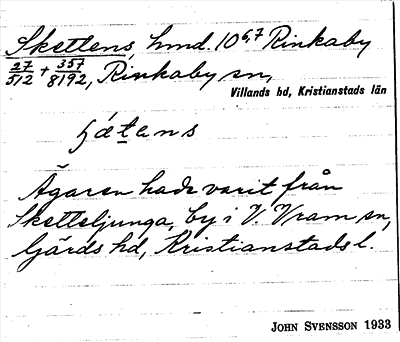 Skettens, hmd. 10⁶,⁷ Rinkaby
27/512 + 357/8192, Rinkaby sn,
Villands hd, Kristianstads län
Ägaren hade varit från
Sketteljunga, by i V. Vram sn,
Gärds hd, Kristianstads l.
JOHN SVENSSON 1933